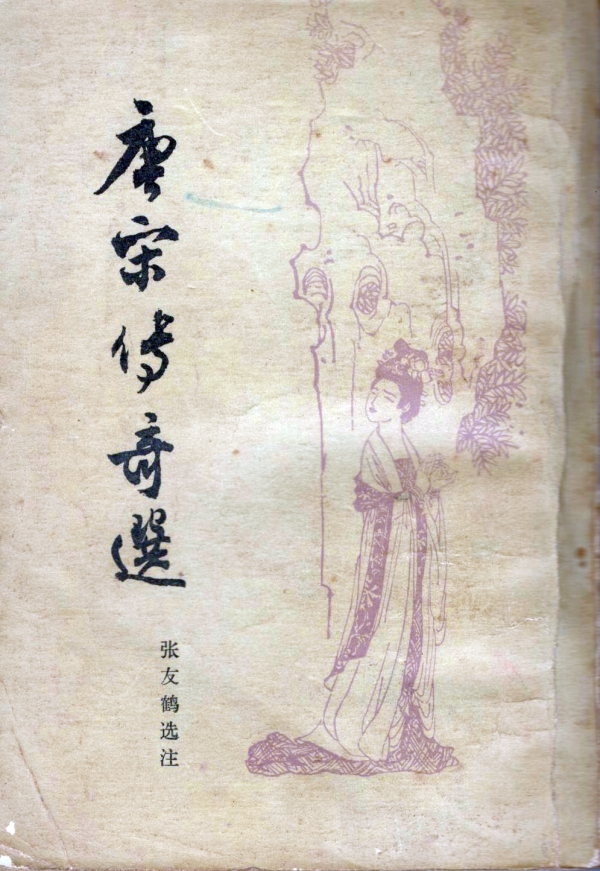 唐宋傳奇選
张友鹤选注